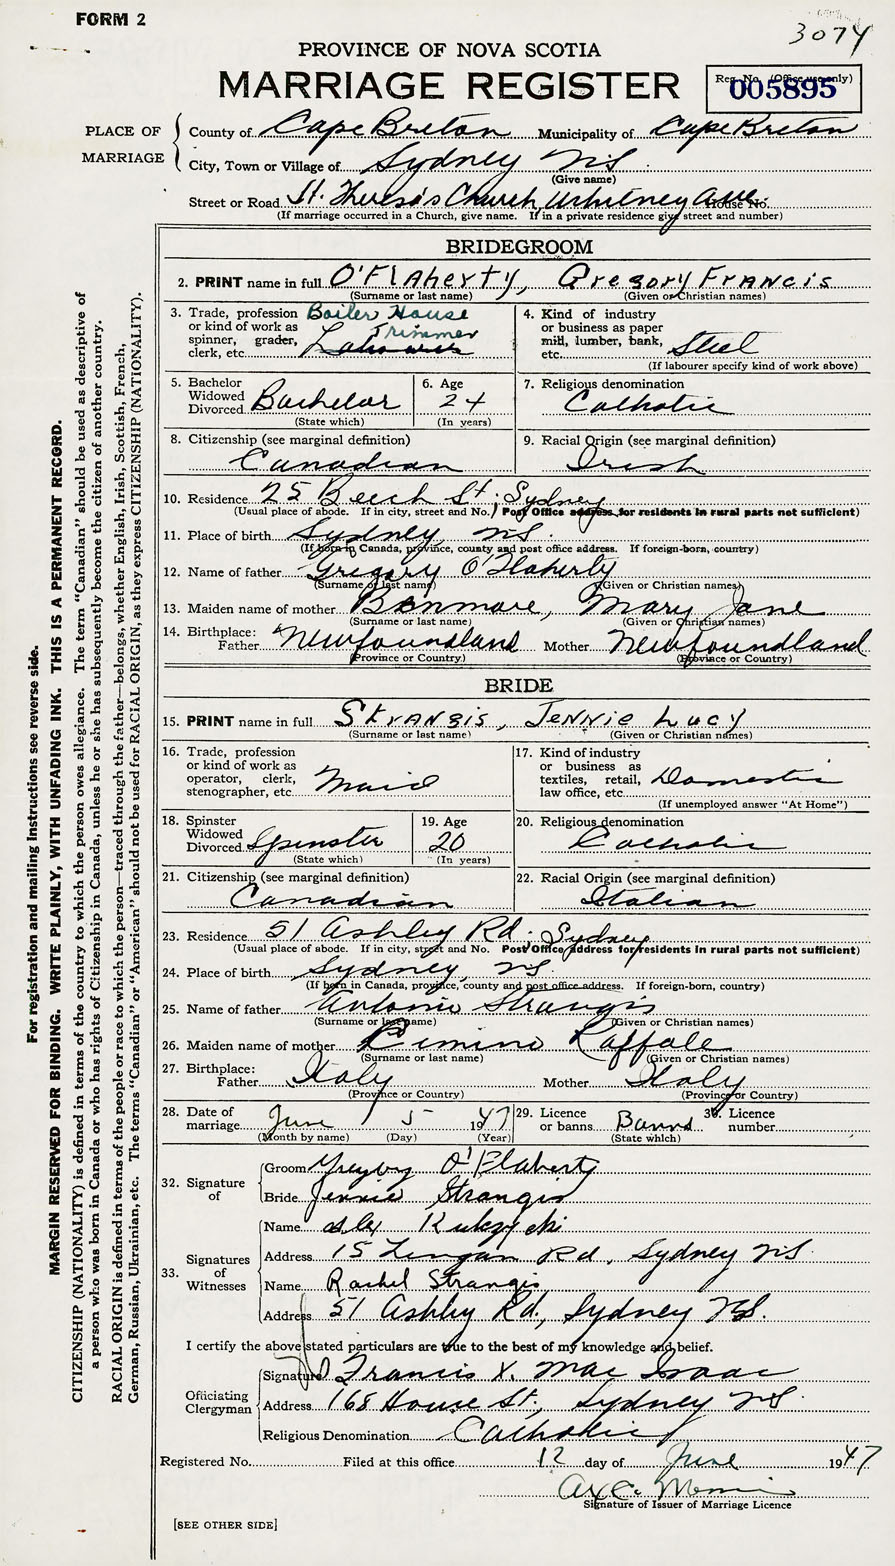 FORM 2
3074
PROVINCE OF NOVA SCOTIA
MARRIAGE REGISTER
Reg. No. (Office use only)
005895
PLACE OF MARRIAGE
County of Cape Breton Municipality of Cape Breton
City, Town or Village of Sydney NS
(Give name)
Street or Road St. Theresa's Church, Whitney Ave. House No.
(If marriage occurred in a Church, give name. If in a private residence give street and number)
BRIDEGROOM
2. PRINT name in full O'Flaherty, Gregory Francis
(Surname or last name) (Given or Christian names)
3. Trade, profession or kind of work as spinner, grader, clerk, etc. Boiler House Trimmer
4. Kind of industry or business as paper mill, lumber, bank, etc. Steel
(If labourer specify kind of work above)
5. Bachelor Widowed Divorced Bachelor
(State which)
6. Age 24
(In years)
7. Religious denomination
Catholic
8. Citizenship (see marginal definition)
Canadian
9. Racial Origin (see marginal definition)
Irish
10. Residence 25 Beech St; Sydney
(Usual place of abode. If in city, street and No. Post Office address for residents in rural parts not sufficient)
11. Place of birth Sydney, NS.
(If born in Canada, province, county and post office address. If foreign-born, country)
12. Name of father Gregory O'Flaherty
(Surname or last name) (Given or Christian names)
13. Maiden name of mother Benmore, Mary Jane
(Surname or last name) (Given or Christian names)
14. Birthplace: Father Newfoundland Mother Newfoundland
(Province or Country) (Province or Country)
BRIDE
15. PRINT name in full Strangis, Jennie Lucy
(Surname or last name) (Given or Christian names)
16. Trade, profession or kind of work as operator, clerk, stenographer, etc. Maid
17. Kind of industry or business as textiles, retail, law office, etc. Domestic
(If unemployed answer "At Home")
18. Spinster Widowed Divorced Spinster
(State which)
19. Age 20
(In years)
20. Religious denomination
Catholic
21. Citizenship (see marginal definition)
Canadian
22. Racial Origin (see marginal definition)
Italian
23. Residence 51 Ashley Rd; Sydney
(Usual place of abode. If in city, street and No. Post Office address for residents in rural parts not sufficient)
24. Place of birth Sydney, NS.
(If born in Canada, province, county and post office address. If foreign-born, country)
25. Name of father Antonio Strangis
(Surname or last name) (Given or Christian names)
26. Maiden name of mother Cimino Raffale
(Surname or last name) (Given or Christian names)
27. Birthplace: Father Italy Mother Italy
(Province or Country) (Province or Country)
28. Date of marriage June 5 1947
(Month by name) (Day) (Year)
29. Licence or banns Banns
(State which)
30. Licence number
32. Signature of
Groom Gregory O'Flaherty
Bride Jennie Strangis
33. Signatures of Witnesses
Name Alex
Address 15 Lingan Rd, Sydney NS.
Name Rachel Strangis
Address 51 Ashley Rd, Sydney NS.
I certify the above stated particulars are true to the best of my knowledge and belief.
Officiating Clergyman
Signature Francis X. MacIsaac
Address 168 House St., Sydney NS.
Religious Denomination Catholic
Registered No. Filed at this office 12 day of June 1947
Signature of Issuer of Marriage Licence
[SEE OTHER SIDE]
For registration and mailing instructions see reverse side.
MARGIN RESERVED FOR BINDING. WRITE PLAINLY, WITH UNFADING INK. THIS IS A PERMANENT RECORD.
CITIZENSHIP (NATIONALITY) is defined in terms of the country to which the person owes allegiance. The term "Canadian" should be used as descriptive of
a person who was born in Canada or who has rights of Citizenship in Canada, unless he or she has subsequently become the citizen of another country.
RACIAL ORIGIN is defined in terms of the people or race to which the person—traced through the father—belongs, whether English, Irish, Scottish, French,
German, Russian, Ukrainian, etc. The terms "Canadian" or "American" should not be used for RACIAL ORIGIN, as they express CITIZENSHIP (NATIONALITY).